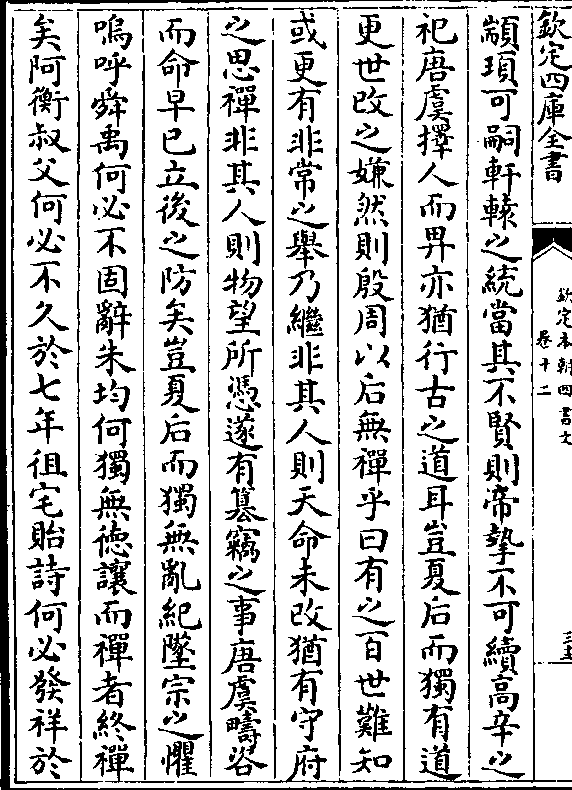 欽定四庫全書
欽定本朝四書文
卷十二
顓頊可嗣軒轅之統當其不賢則帝摯不可續高辛之
祀唐虞擇人而畀亦猶行古之道耳豈夏后而獨有道
更世改之嫌然則殷周以后無禪乎曰有之百世難知
或更有非常之舉乃繼非其人則天命未改猶有守府
之思禪非其人則物望所憑遂有簒竊之事唐虞疇咨
而命早已立後之防矣豈夏后而獨無亂紀墜宗之懼
嗚呼舜禹何必不固辭朱均何獨無徳讓而禪者終禪
矣阿衡叔父何必不久於七年徂宅貽詩何必發祥於